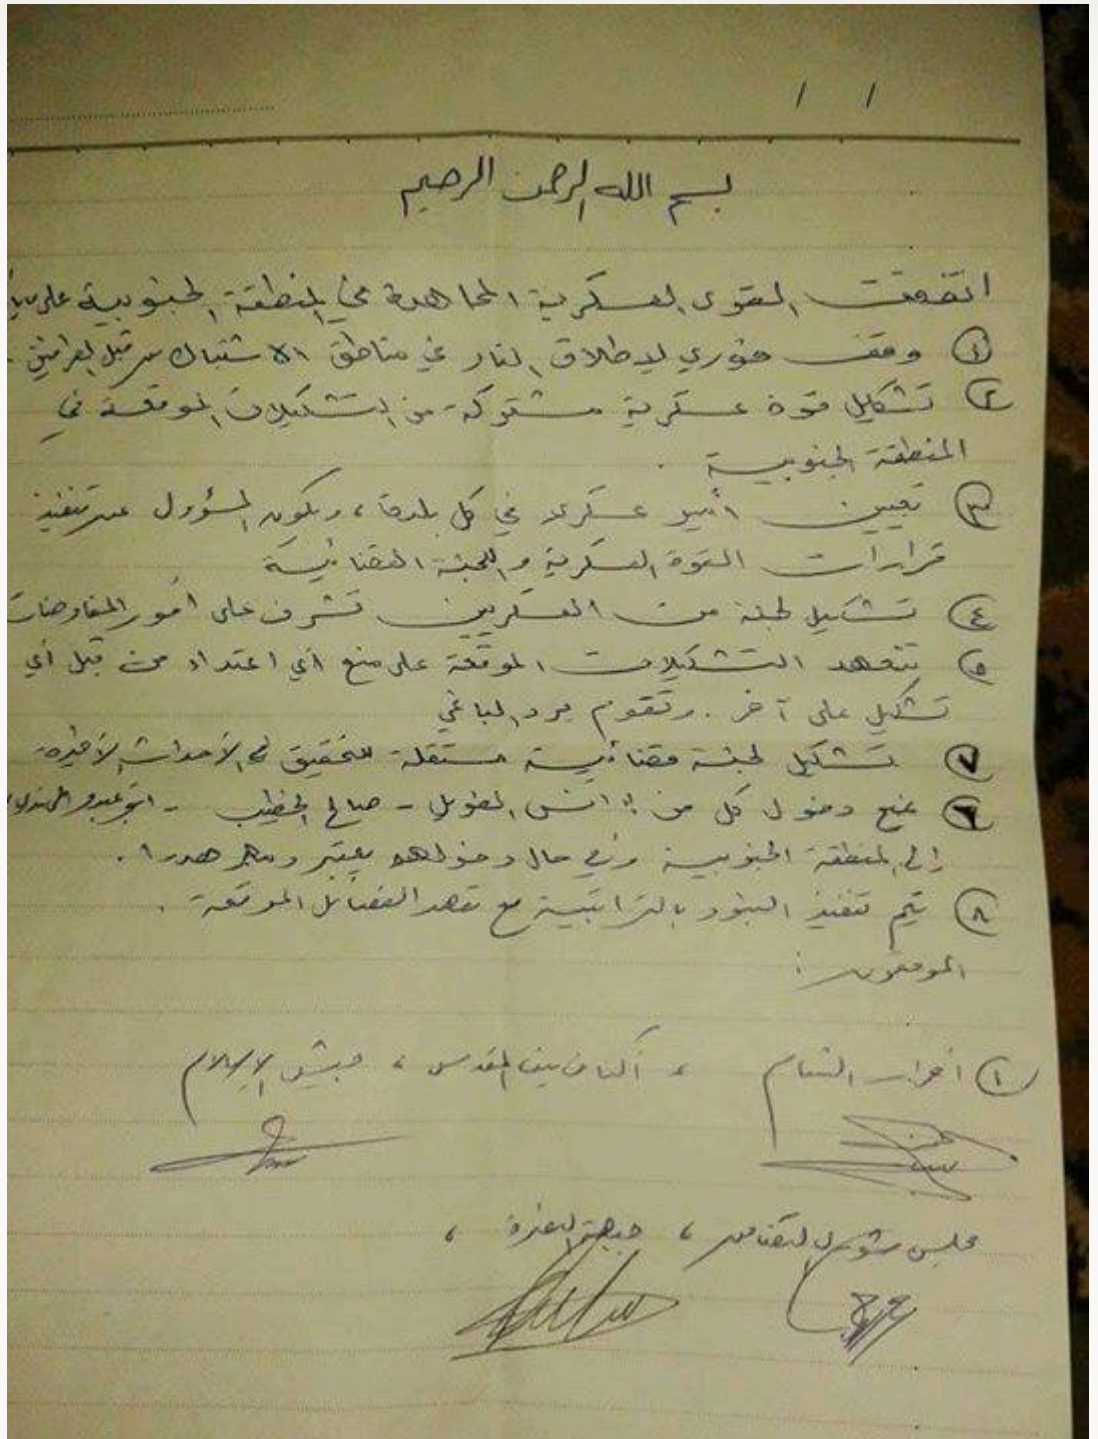 / /
بسم الله الرحمن الرحيم
اتفقت القوى العسكرية المجاهدة في المنطقة الجنوبية على
① وقف فوري لإطلاق النار في مناطق الاشتباك من قبل الطرفين.
② تشكيل قوة عسكرية مشتركة من التشكيلات الموقعة في
المنطقة الجنوبية .
③ تعيين أمير عسكري في كل بلدة، ويكون المسؤول عن تنفيذ
قرارات القوة العسكرية واللجنة القضائية
④ تشكيل لجنة من العسكريين تشرف على أمور المفاوضات
⑤ تتعهد التشكيلات الموقعة على منع أي اعتداء من قبل أي
تشكيل على آخر. وتقوم برد الباغي
⑦ تشكيل لجنة قضائية مستقلة للتحقيق في الأحداث الأخيرة
⑥ منع دخول كل من: انس الطويل - صالح الخطيب -
إلى المنطقة الجنوبية وفي حال دخولهم يعتبر دمهم هدرا.
⑧ يتم تنفيذ البنود بالتراتبية مع تعهد الفصائل الموقعة.
الموقعون:
① أحرار الشام ، أكناف بيت المقدس ، جيش الإسلام
مجلس شورى التضامن ، جبهة النصرة ،